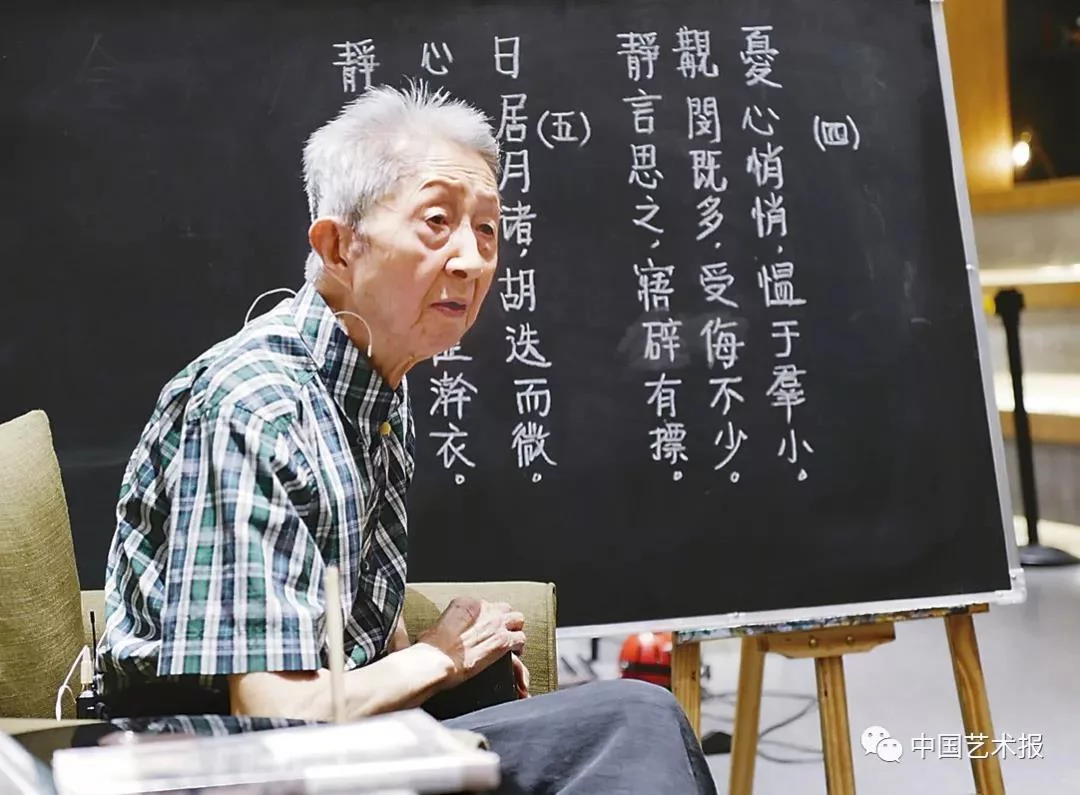 (四)
憂心悄悄，慍于羣小。
覯閔既多，受侮不少。
靜言思之，寤辟有摽。
(五)
日居月诸，胡迭而微。
心 澣衣。
靜
中国艺术报